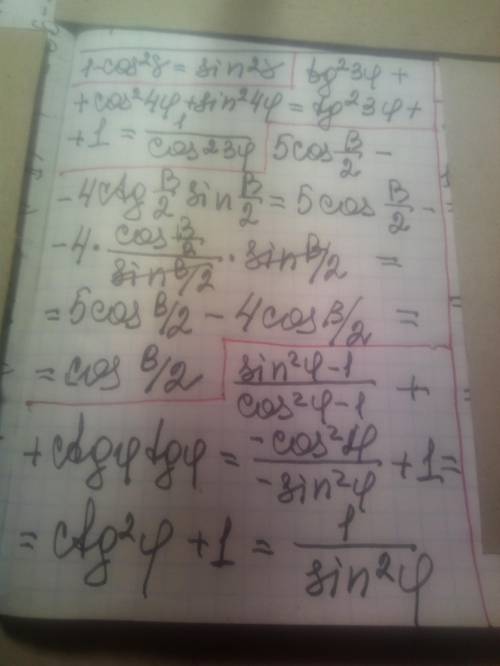 1-cos²γ = sin²γ tg²3φ +
+cos²4φ+sin²4φ = tg²3φ+
+1 = 1/cos²3φ 5cos β/2 -
-4ctg β/2 sin β/2 = 5cos β/2 -
-4 · cos β/2 / sin β/2 · sin β/2 =
=5cos β/2 - 4cos β/2 =
= cos β/2 sin²φ-1 / cos²φ-1 +
+ctgφ tgφ = -cos²φ / -sin²φ +1=
= ctg²φ +1 = 1 / sin²φ